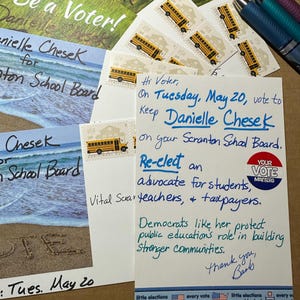 Be a Voter!
Danielle Chesek
for
Scranton School Board
Chesek
or
School Board
Tues. May 20
Vital Scra
Hi Voter,
On Tuesday, May 20, vote to
Keep Danielle Chesek
on your Scranton School Board.
Re-elect an
advocate for students,
teachers, & taxpayers.
YOUR
VOTE
MATTERS
Democrats like her protect
public education's role in building
stronger communities.
Thank you,
Barb
little elections
every vote
little elections
every v